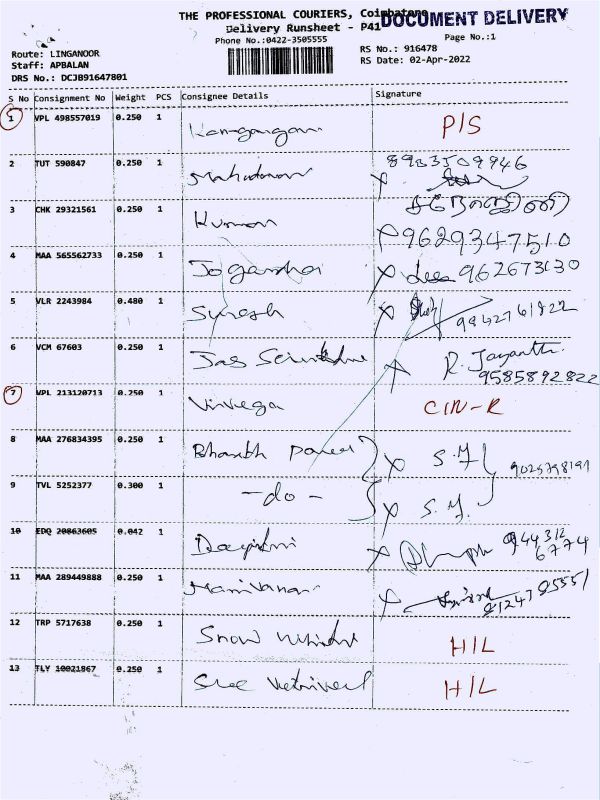 THE PROFESSIONAL COURIERS, Coimbatore
DOCUMENT DELIVERY
Delivery Runsheet - P41
Phone No.:0422-3505555
Page No.:1
Route: LINGANOOR
Staff: APBALAN
DRS No.: DCJB91647801
RS No.: 916478
RS Date: 02-Apr-2022
S No Consignment No Weight PCS Consignee Details Signature
1 VPL 498557019 0.250 1 P/S
2 TUT 590847 0.250 1 8903509946
3 CHK 29321561 0.250 1 Kumar 9629347510
4 MAA 565562733 0.250 1
5 VLR 2243984 0.480 1 Suresh
6 VCM 67603 0.250 1 R. Jayanthi
9585892822
7 VPL 213120713 0.250 1 CIN-R
8 MAA 276834395 0.250 1 S.M
9 TVL 5252377 0.300 1 -do- S.M.
10 EDQ 20863605 0.042 1 944312
6774
11 MAA 289449888 0.250 1 Manivanan
12 TRP 5717638 0.250 1 Snow H/L
13 TLY 10021867 0.250 1 Sree Vetrivel H/L